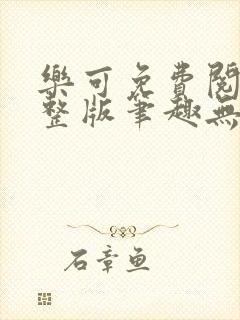 樂可免費閱
整版筆趣無
石章魚